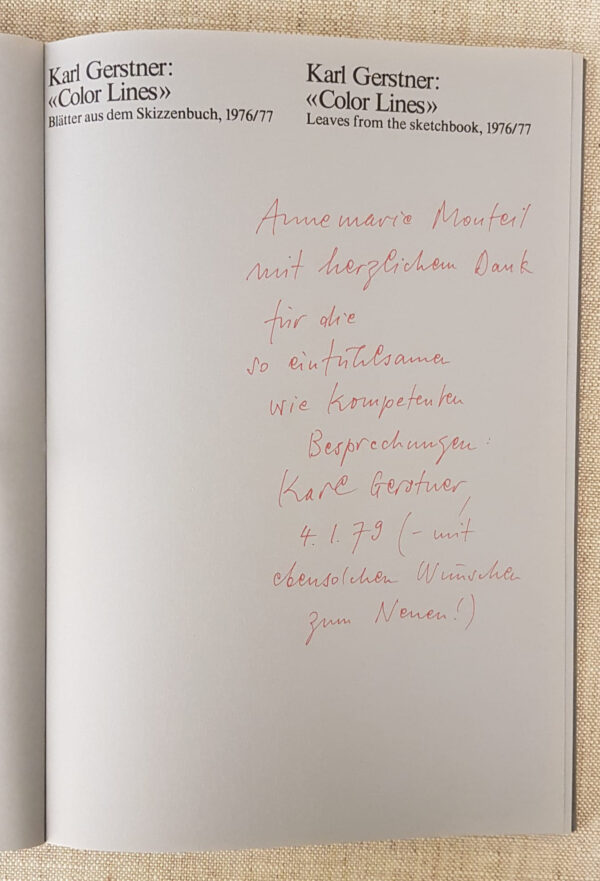 Karl Gerstner:
«Color Lines»
Blätter aus dem Skizzenbuch, 1976/77
Karl Gerstner:
«Color Lines»
Leaves from the sketchbook, 1976/77
Annemarie Monteil
mit herzlichem Dank
für die
so einfühlsamen
wie kompetenten
Besprechungen:
Karl Gerstner,
4. 1. 79 (- mit
ebensolchen Wünschen
zum Neuen!)